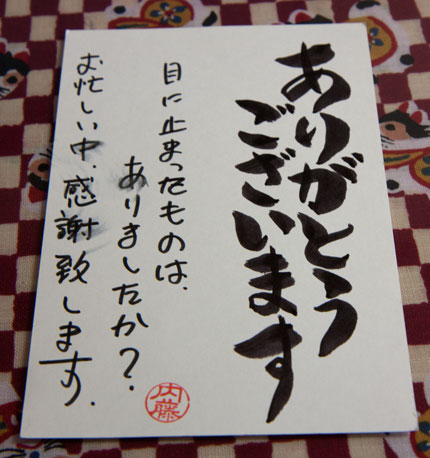 ありがとう
ございます
目に止まったものは、
ありましたか?
お忙しい中、感謝致します.
内藤